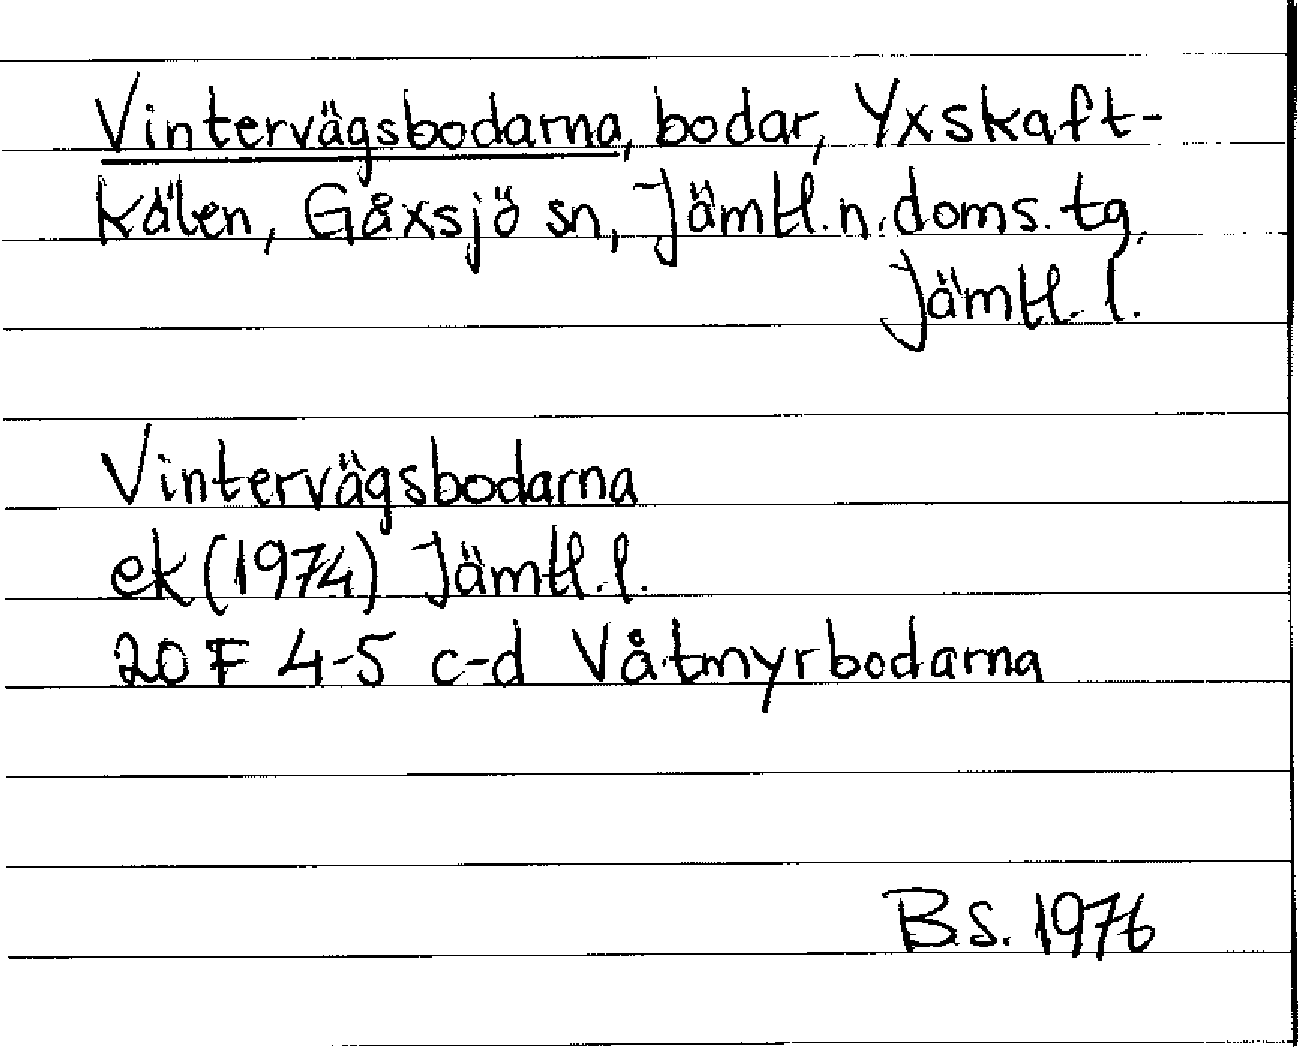 Vintervägsbodarna, bodar, Yxskaft-
kälen, Gåxsjö sn, Jämtl. n. doms. tg,
Jämtl. l.
Vintervägsbodarna
ek (1974) Jämtl. l.
20 F 4-5 c-d Våtmyrbodarna
B.S. 1976